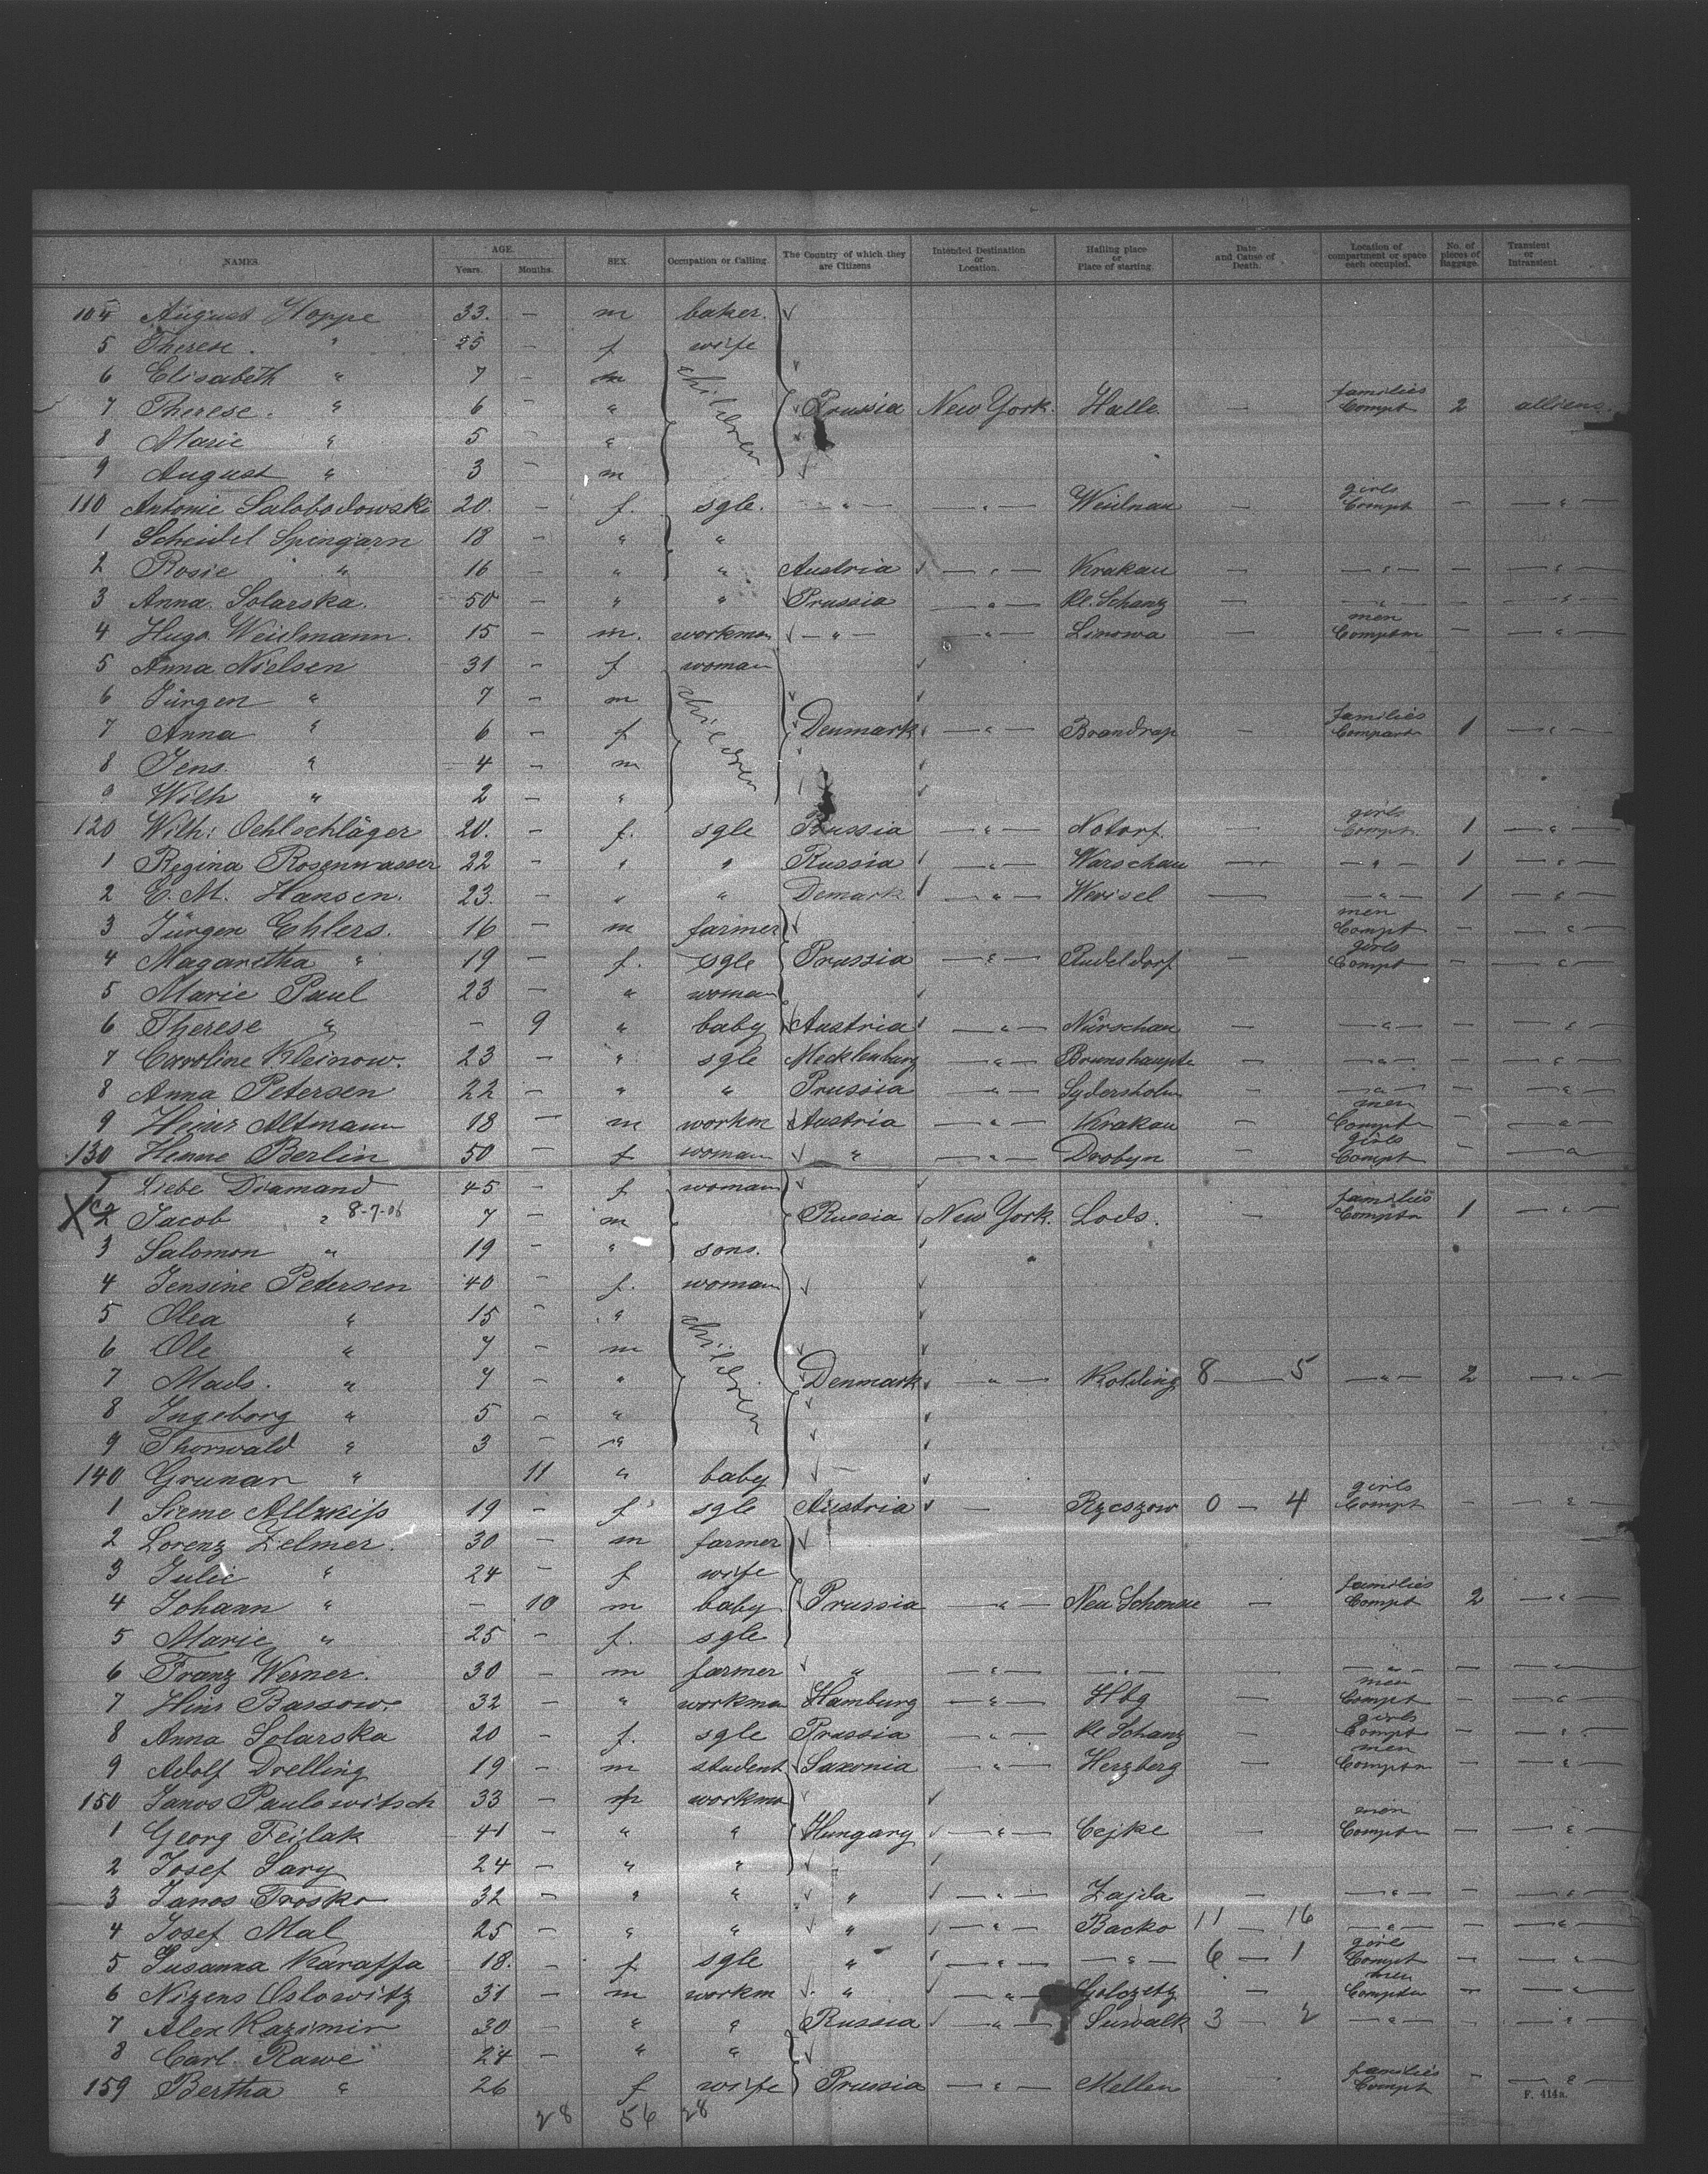 NAMES. AGE. Years. Months. SEX. Occupation or Calling. The Country of which they are Citizens Intended Destination or Location. Hailing place or Place of starting. Date and Cause of Death. Location of compartment or space each occupied. No. of pieces of Baggage. Transient or Intransient.
104 August Hoppe 33. – m baker.
5 Therese " 25 – f wife
6 Elisabeth " 7 – m children
7 Therese. " 6 – " Prussia New York. Halle. – families Compt 2 alliens.
8 Marie " 5 – "
9 August " 3 – m
110 Antonie Salobodowski 20. – f. sgle. – " – – " – Weidnau – girls Compt – – " –
1 Scheidel Spingarn 18 – " "
2 Rosie " 16 – " " Austria – " – Krakau – – " – – – " –
3 Anna Solarska. 50 – " " Prussia – " – Kl. Schanz – – " – – – " –
4 Hugo Weidmann. 15 – m. workman – " – – " – Linowa – men Comptm – – " –
5 Anna Nielsen 31 – f woman
6 Jürgen " 7 – m children
7 Anna " 6 – f Denmark – " – Brandrap – families Compart 1 – " –
8 Jens. " 4 – m
9 Wilh " 2 – "
120 Wilh: Oehlschläger 20. – f. sgle Prussia – " – Notorf – girls Compt 1 – " –
1 Regina Rosenwasser 22 – " " Russia – " – Warschau – – " – 1 – " –
2 E. M. Hansen. 23. – " " Demark – " – Wevisel – – " – 1 – " –
3 Jürgen Ehlers. 16 – m farmer men Compt – – " –
4 Magaretha " 19 – f. sgle Prussia – " – Rudeldorf – girls Compt – – " –
5 Marie Paul 23 – " woman
6 Therese " – 9 " baby Austria – " – Nürschau – – " – – – " –
7 Caroline Kleinow. 23 – " sgle Mecklenburg – " – Brunshaupte – – " – – – " –
8 Anna Petersen 22 – " " Prussia – " – Sydersholm – – " – – – " –
9 Heinr Altmann 18 – m workm Austria – " – Krakau – men Compt – – " –
130 Henne Berlin 50 – f woman " – " – Drobyn – girls Compt – – " –
1 Liebe Diamand 45 – f woman
X 2 Jacob " 8-7-06 7 – m Russia New York. Lods. – families Comptm 1 – " –
3 Salomon " 19 – " sons.
4 Jensine Petersen 40 – f. woman
5 Olea " 15 – " children
6 Ole " 7 – m
7 Mads. " 7 – " Denmark – " – Kolding 8 – 5 – " – 2 – " –
8 Ingeborg " 5 – "
9 Thorwald " 3 – "
140 Grunar " 11 " baby
1 Sieme 19 – f sgle Austria – Rzeszow 0 – 4 girls Compt – – " –
2 Lorenz Zelmer. 30 – m farmer
3 Julie " 24 – f wife
4 Johann " – 10 m baby Prussia – " – Neu Schonsie – families Compt 2 – " –
5 Marie " 25 – f. sgle
6 Franz Werner. 30 – m farmer " – " – – " – – " – – – " –
7 Hinr Bassow. 32 – " workma Hamburg – " – Hbg – men Compt – – " –
8 Anna Solarska 20 – f. sgle Prussia – " – Kl Schanz – girls Compt – – " –
9 Adolf Drelling 19 – m student Saxonia – " – Herzberg – men Comptm – – " –
150 Janos Paulowitsch 33 – m workma
1 Georg Feilak 41 – " " Hungary – " – Cejke – men Comptm – – " –
2 Josef Sary 24 – " "
3 Janos Trosko 32 – " " " – " – Zajda – – " – – – " –
4 Josef Mal 25 – " " " – " – Backo 11 – 16 – " – – – " –
5 Susanna Karaffa 18. – f sgle " – " – – " – 6 – 1 girls Compt – – " –
6 Nizens Oslowitz 31 – m workm " – " – Golczetz – men Comptm – – " –
7 Alex Kazimir 30 – " " Russia – " – Suwalk 3 – 2 – " – – – " –
8 Carl Rawe 24 – " "
159 Bertha " 26 f wife Prussia – " – Mellen families Compt – – " –
F. 414a.
28 56 28